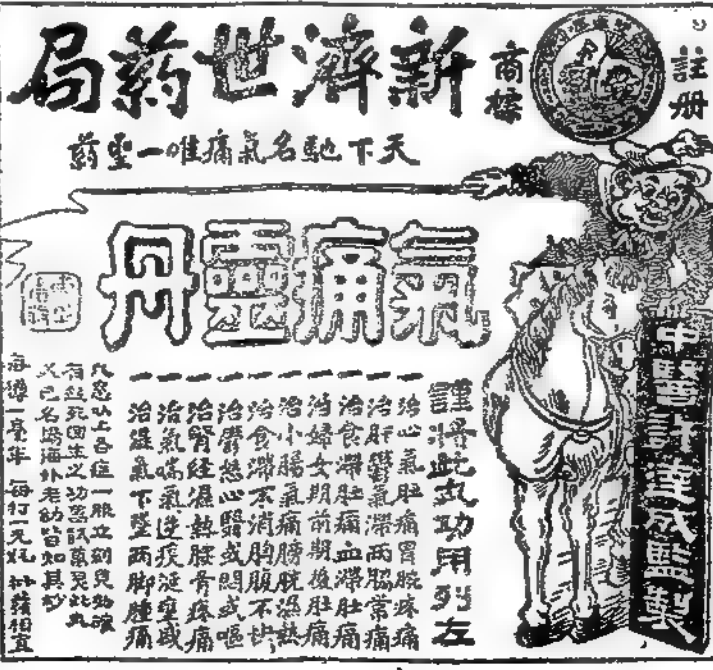 註册
商標
新濟世葯局
天下馳名氣痛唯一聖葯
氣痛靈丹
中醫許達成監製
謹將此丸功用列左
一治心氣肚痛胃脘疼痛
一治肝鬱氣滯两脇常痛
一治食滯肚痛血滯肚痛
一治婦女期前期後肚痛
一治小腸氣痛膀胱濕熱
一治食滯不消胸腹不快
一治悶或嘔
一治腎經濕熱腰骨疼痛
一治氣喘氣逆痰涎壅盛
一治濕氣下墜两脚腫痛
凡患以上各症一服立刻見効確
有起死回生之功
又已名揚海外老幼皆知其妙
每樽一毫半 每打一元 批發相宜